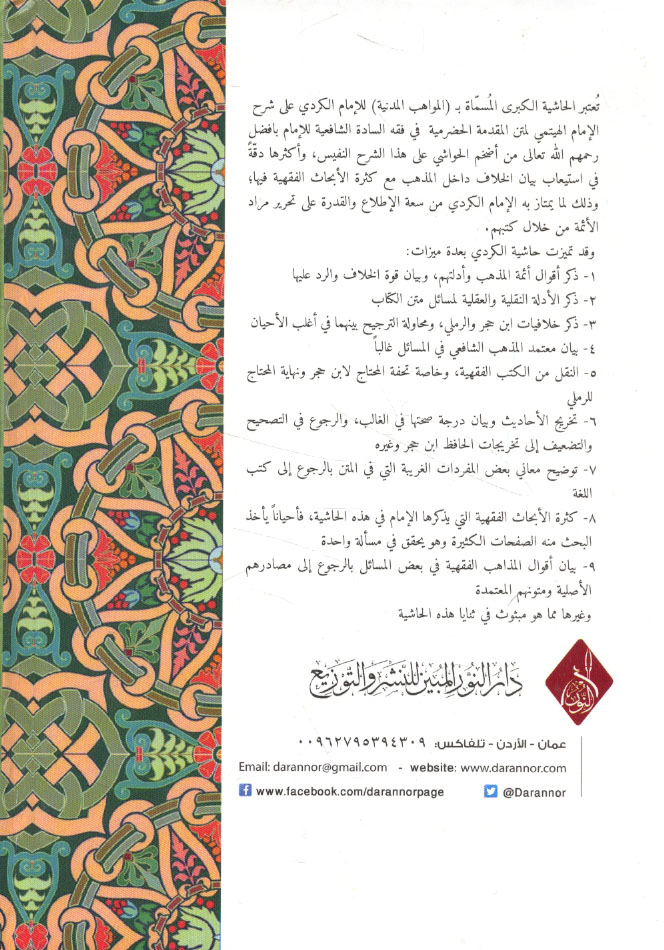 تُعتبر الحاشية الكبرى المُسمّاة بـ (المواهب المدنية) للإمام الكردي على شرح
الإمام الهيتمي لمتن المقدمة الحضرمية في فقه السادة الشافعية للإمام بافضل
رحمهم الله تعالى من أضخم الحواشي على هذا الشرح النفيس، وأكثرها دقّةً
في استيعاب بيان الخلاف داخل المذهب مع كثرة الأبحاث الفقهية فيها؛
وذلك لما يمتاز به الإمام الكردي من سعة الإطلاع والقدرة على تحرير مراد
الأئمة من خلال كتبهم.
وقد تميزت حاشية الكردي بعدة ميزات:
١- ذكر أقوال أئمة المذهب وأدلتهم، وبيان قوة الخلاف والرد عليها
٢- ذكر الأدلة النقلية والعقلية لمسائل متن الكتاب
٣- ذكر خلافيات ابن حجر والرملي، ومحاولة الترجيح بينهما في أغلب الأحيان
٤- بيان معتمد المذهب الشافعي في المسائل غالباً
٥- النقل من الكتب الفقهية، وخاصة تحفة المحتاج لابن حجر ونهاية المحتاج
للرملي
٦- تخريج الأحاديث وبيان درجة صحتها في الغالب، والرجوع في التصحيح
والتضعيف إلى تخريجات الحافظ ابن حجر وغيره
٧- توضيح معاني بعض المفردات الغريبة التي في المتن بالرجوع إلى كتب
اللغة
٨- كثرة الأبحاث الفقهية التي يذكرها الإمام في هذه الحاشية، فأحياناً يأخذ
البحث منه الصفحات الكثيرة وهو يحقق في مسألة واحدة
٩- بيان أقوال المذاهب الفقهية في بعض المسائل بالرجوع إلى مصادرهم
الأصلية ومتونهم المعتمدة
وغيرها مما هو مبثوث في ثنايا هذه الحاشية
دار النور المبين للنشر والتوزيع
النور
عمان - الأردن - تلفاكس: ٠٠٩٦٢٧٩٥٣٩٤٣٠٩
Email: darannor@gmail.com - website: www.darannor.com
www.facebook.com/darannorpage @Darannor